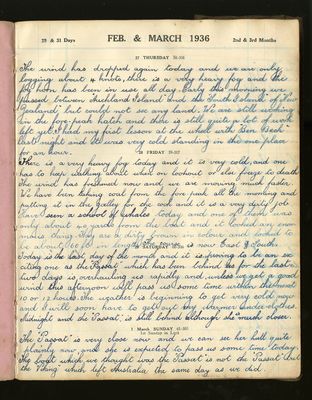 29 & 31 Days
FEB. & MARCH 1936
2nd & 3rd Months
27 THURSDAY 58-308
The wind has dropped again today and we are only
logging about 4 knots, there is a very heavy fog and the
fog horn has been in use all day. Early this morning we
passed between Auckland Island and the South Islands of New
Zealand but could not see any land. We are still working
in the fore-peak hatch and there is still quite a lot of work
left yet. I had my first lesson at the wheel with Ben Beck
last night and it was very cold standing in the one place
for an hour.
28 FRIDAY 59-307
There is a very heavy fog today and it is very cold, and one
has to keep walking about when on lookout or else freeze to death
The wind has freshened now and we are moving much faster.
We have been taking coal from the fore peak all the morning and
putting it in the galley for the cook and it is a very dirty job
Have seen a school of whales today and one of them was
only about 40 yards from the boat and it looked an enor-
mous thing. They are a dirty brown in colour and looked to
be about 60 ft in length. is now East & South.
29 SATURDAY 60-306
Today is the last day of the month and it is proving to be an ex-
citing one as the "Passat" which has been behind us for the last
two days is overhauling us rapidly and unless we get a good
wind this afternoon will pass us some time within the next
10 or 12 hours. The weather is beginning to get very cold now
and I will soon have to get out my warmer underclothes
Midnight and the "Passat" is still behind although she's much closer.
1 March SUNDAY 61-305
1st Sunday in Lent
The "Passat" is very close now and we can see her hull quite
plainly now and she is expected to pass us some time today.
The boat which we thought was the "Passat" is not the "Passat" but
the "Viking" which left Australia the same day as we did.